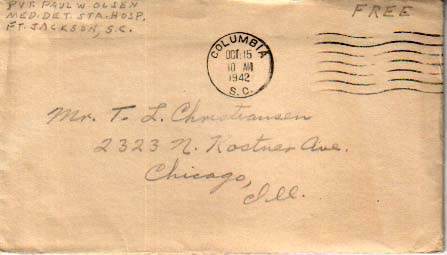 PVT. PAUL W. OLSEN
MED. DET. STA. HOSP.
FT. JACKSON, S.C.
COLUMBIA
OCT 15
10 AM
1942
S.C.
FREE
Mr. T. L. Christiansen
2323 N. Kostner Ave.
Chicago,
Ill.